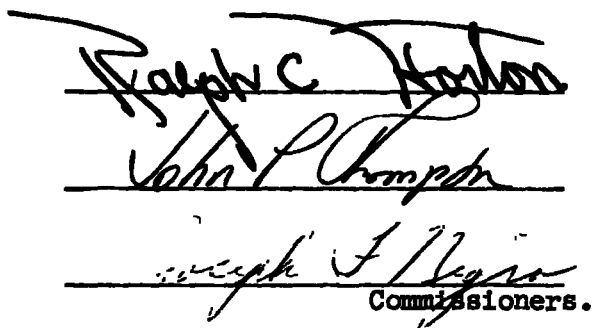 Ralph C Horton
John P Thompson
Joseph F
Commissioners.